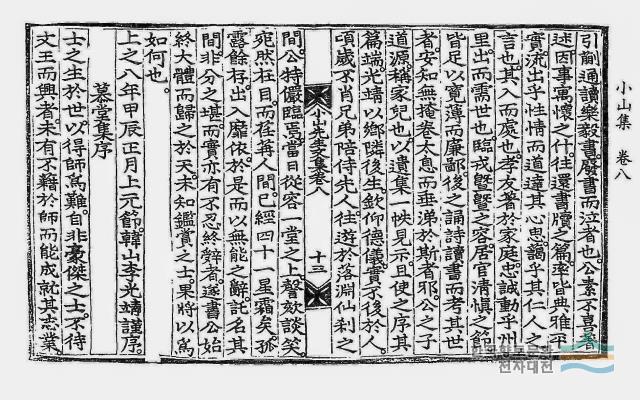 小山集 卷八
引前通讀樂毅書廢書而泣者也公素不喜著
述因事寓懷之什往還書牘之篇率皆典雅平
實流出乎性情而道達其心思藹乎其仁人之
言也其入而處也孝友著於家庭忠誠動乎州
里出而需世也臨戎曁曁之容居官清愼之節
皆足以寬薄而廉鄙後之誦詩讀書而考其世
者安知無掩卷太息而垂涕於斯者耶公之子
道源稱家兒也以遺集一帙見示且使之序其
篇端光靖以鄕隣後生欽仰德儀實不後於人
頃歲不肖兄弟陪侍先人往遊於落淵仙利之
小山先生文集卷八 十三
間公特儼臨焉當日從容一堂之上謦欬談笑
宛然在目而荏苒人間已經四十一星霜矣孤
露餘存出入靡依於是而以無能之辭託名其
間非分之堪而實亦有不忍終辭者遂書公始
終大體而歸之於天未知鑑賞之士果將以爲
如何也
上之八年甲辰正月上元節韓山李光靖謹序
慕堂集序
士之生於世以得師爲難自非豪傑之士不待
文王而興者未有不藉於師而能成就其志業
전자대전